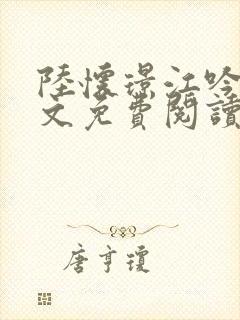 陸懷璟江吟
文免費閱讀
唐亨瓊